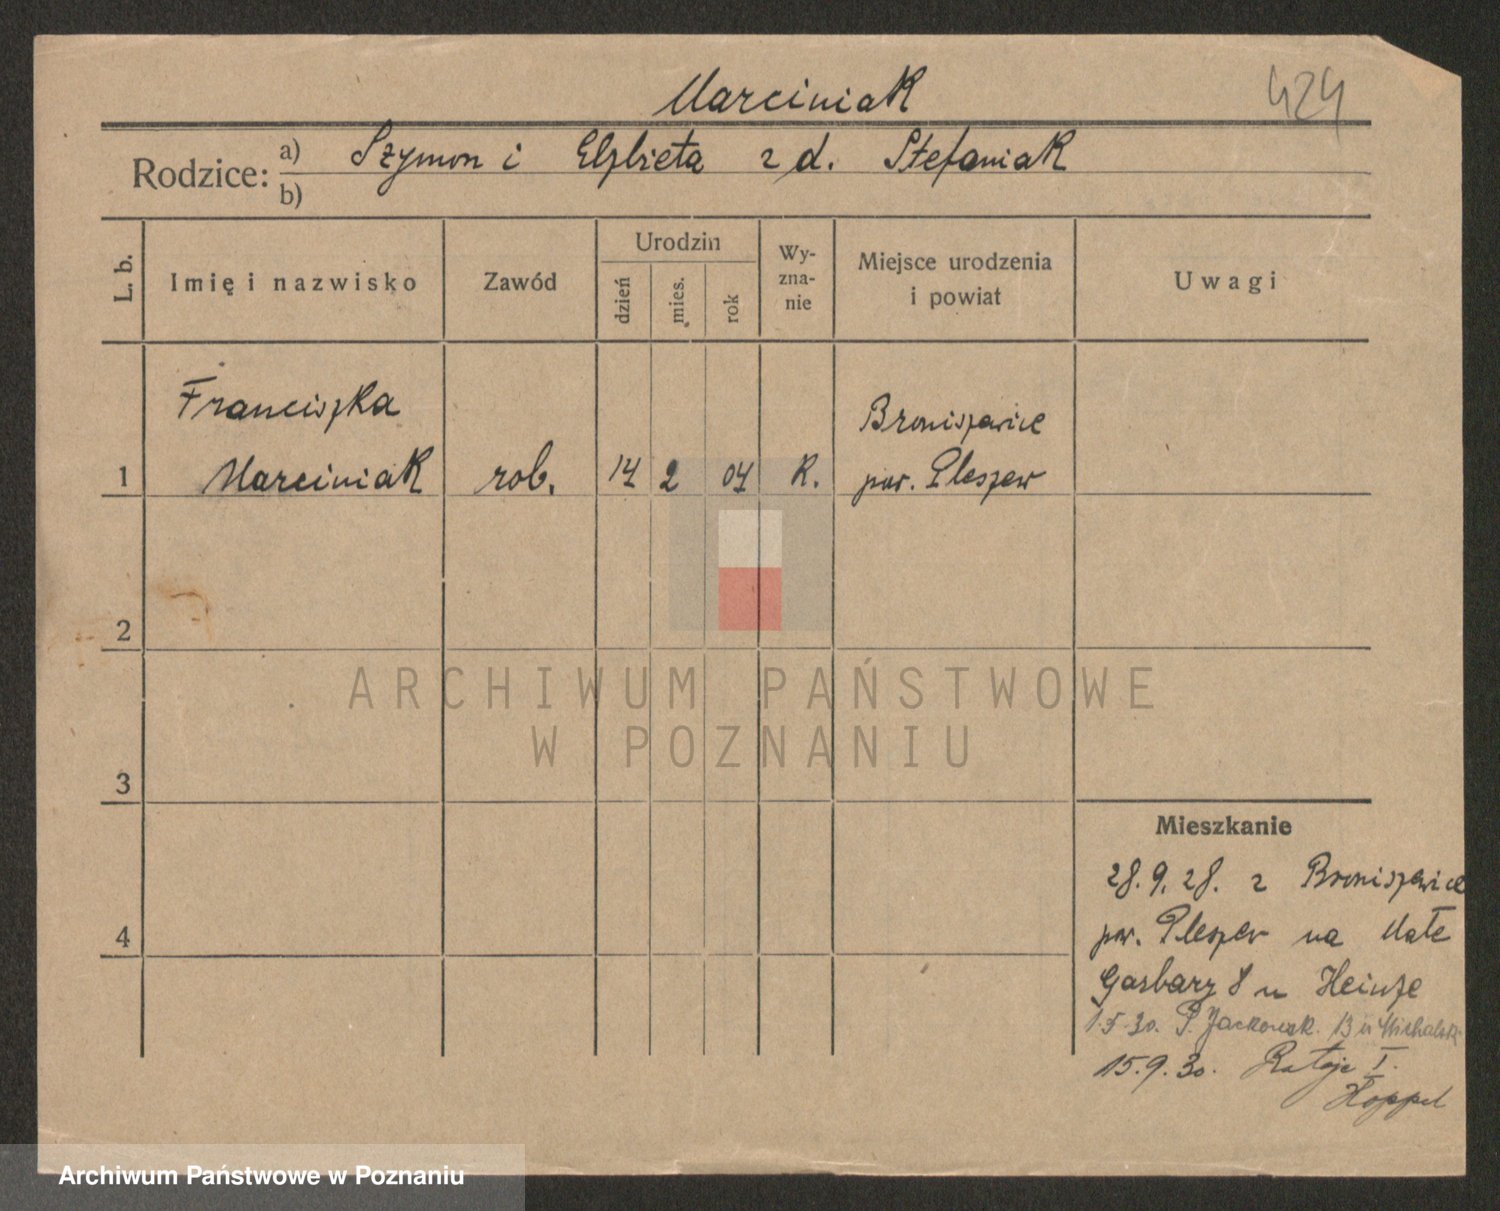 Marciniak
424
Rodzice: a) Szymon i Elżbieta z d. Stefaniak
b)
L. b.
Imię i nazwisko
Zawód
Urodzin
dzień
mies.
rok
Wy-
zna-
nie
Miejsce urodzenia
i powiat
Uwagi
Franciszka
Broniszewice
1 Marciniak rob. 14 2 04 R. pow. Pleszew
2
ARCHIWUM PAŃSTWOWE
W POZNANIU
3
Mieszkanie
28.9.28. z Broniszewice
4
pow. Pleszew na Małe
Garbary 8 u Heinze
1.5.30. P. Jackowsk. 13 u Michalsk.
15.9.30. Rataje I.
Hoppel
Archiwum Państwowe w Poznaniu